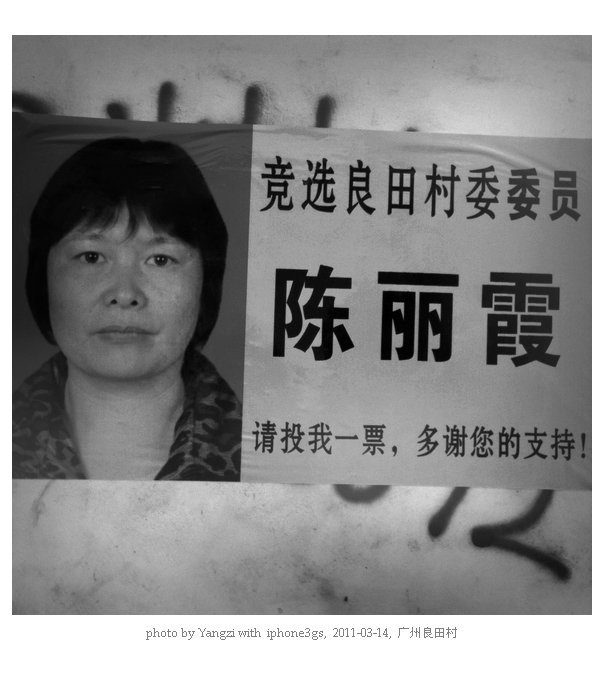 竞选良田村委委员
陈丽霞
请投我一票，多谢您的支持！
photo by Yangzi with iphone3gs, 2011-03-14, 广州良田村